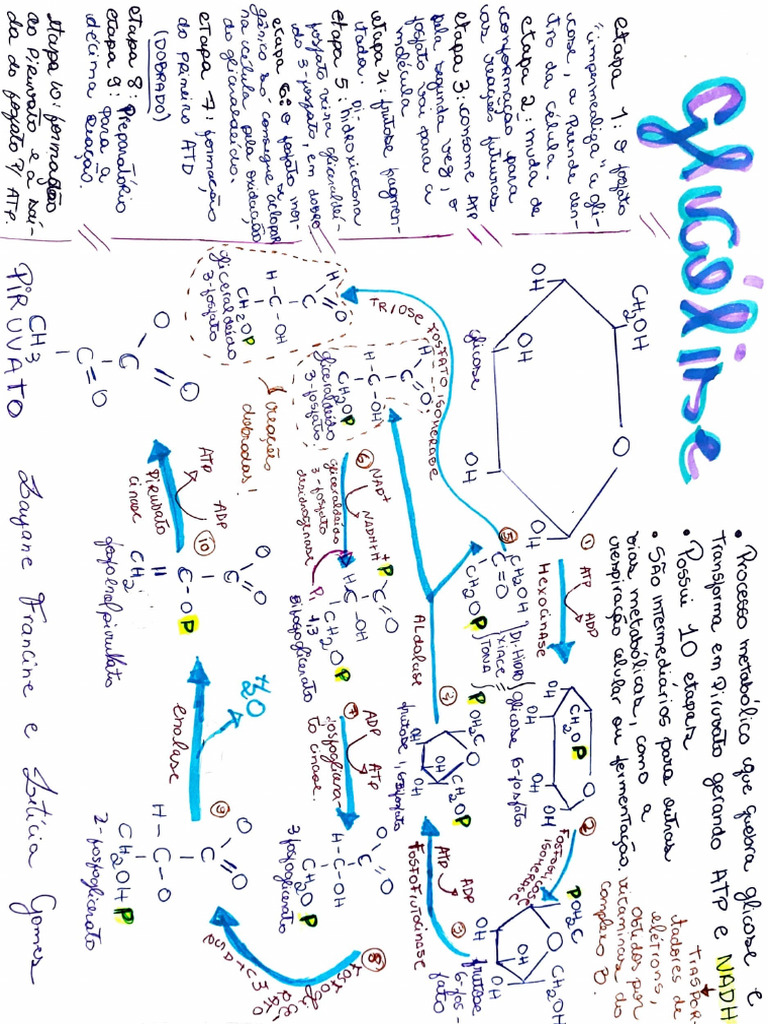 Glicólise
• Processo metabólico que quebra glicose e
transforma em Piruvato gerando ATP e NADH
• Possui 10 etapas
• São intermediários para outras
vias metabólicas, como a
respiração celular ou fermentação.
TRASPOR-
tadores de
elétrons,
obtidos por
vitaminas do
complexo B.
etapa 1: o fosfato
"impermediliza" a gli-
cose, a prende den-
tro da célula.
etapa 2: muda de
conformação para
as reações futuras
etapa 3: consome ATP
pela segunda vez, o
fosfato vai para a
molécula
etapa 4: frutose fragmen-
tada: Di-hidroxicetona
etapa 5:
fosfato vira gliceraldeí-
do 3-fosfato, em dobro
etapa 6: o fosfato inor-
gânico só consegue se acopar
na célula pela oxidação
do gliceraldeído.
etapa 7: formação
do primeiro ATD
(DOBRADO)
etapa 8: Preparatório
etapa 9: para a
décima reação.
etapa 10: formação
do Piruvato e a saí-
da do fosfato p/ ATP.
CH2OH
O
OH
OH
OH
OH
glicose
①
ATP
ADP
Hexocinase
CH2OP
O
OH
OH
OH
OH
glicose 6-fosfato
②
Fosfoglicose
isomerase
POH2C
O
CH2OH
OH
OH
OH
frutose
6-fos-
fato
③
ATP
ADP
FOSFOFRUTOCINASE
POH2C
O
CH2OP
OH
OH
OH
frutose 1,6-bifosfato
④
Aldolase
⑤
CH2OH
C=O
CH2OP
DI-HIDRO
XIACE
TONA
P
TRIOSE FOSFATO ISOMERASE
H
O
C
H-C-OH
CH2OP
gliceraldeído
3-fosfato
H
O
C
H-C-OH
CH2OP
gliceraldeído
3-fosfato
reações
dobradas!
⑥
NAD+
NADH+H+
gliceraldeído
3-fosfato
desidrogenase
Pi
P
O
O
C
H-C-OH
CH2OP
1,3
bifosfoglicerato
⑦
ADP
ATP
fosfoglicera-
to cinase.
O
O
C
H-C-OH
CH2OP
3 fosfoglicerato
⑧
FOSFOGLI
CE
RATO
O
O
C
H-C-O
CH2OHP
2-fosfoglicerato
⑨
enolase
H2O
O
O
C
C-OP
CH2
fosfoenolpiruvato
⑩
ADP
ATP
Piruvato
cinase
O
O
C
C=O
CH3
PIRUVATO
Layane Francine e Letícia Gomes